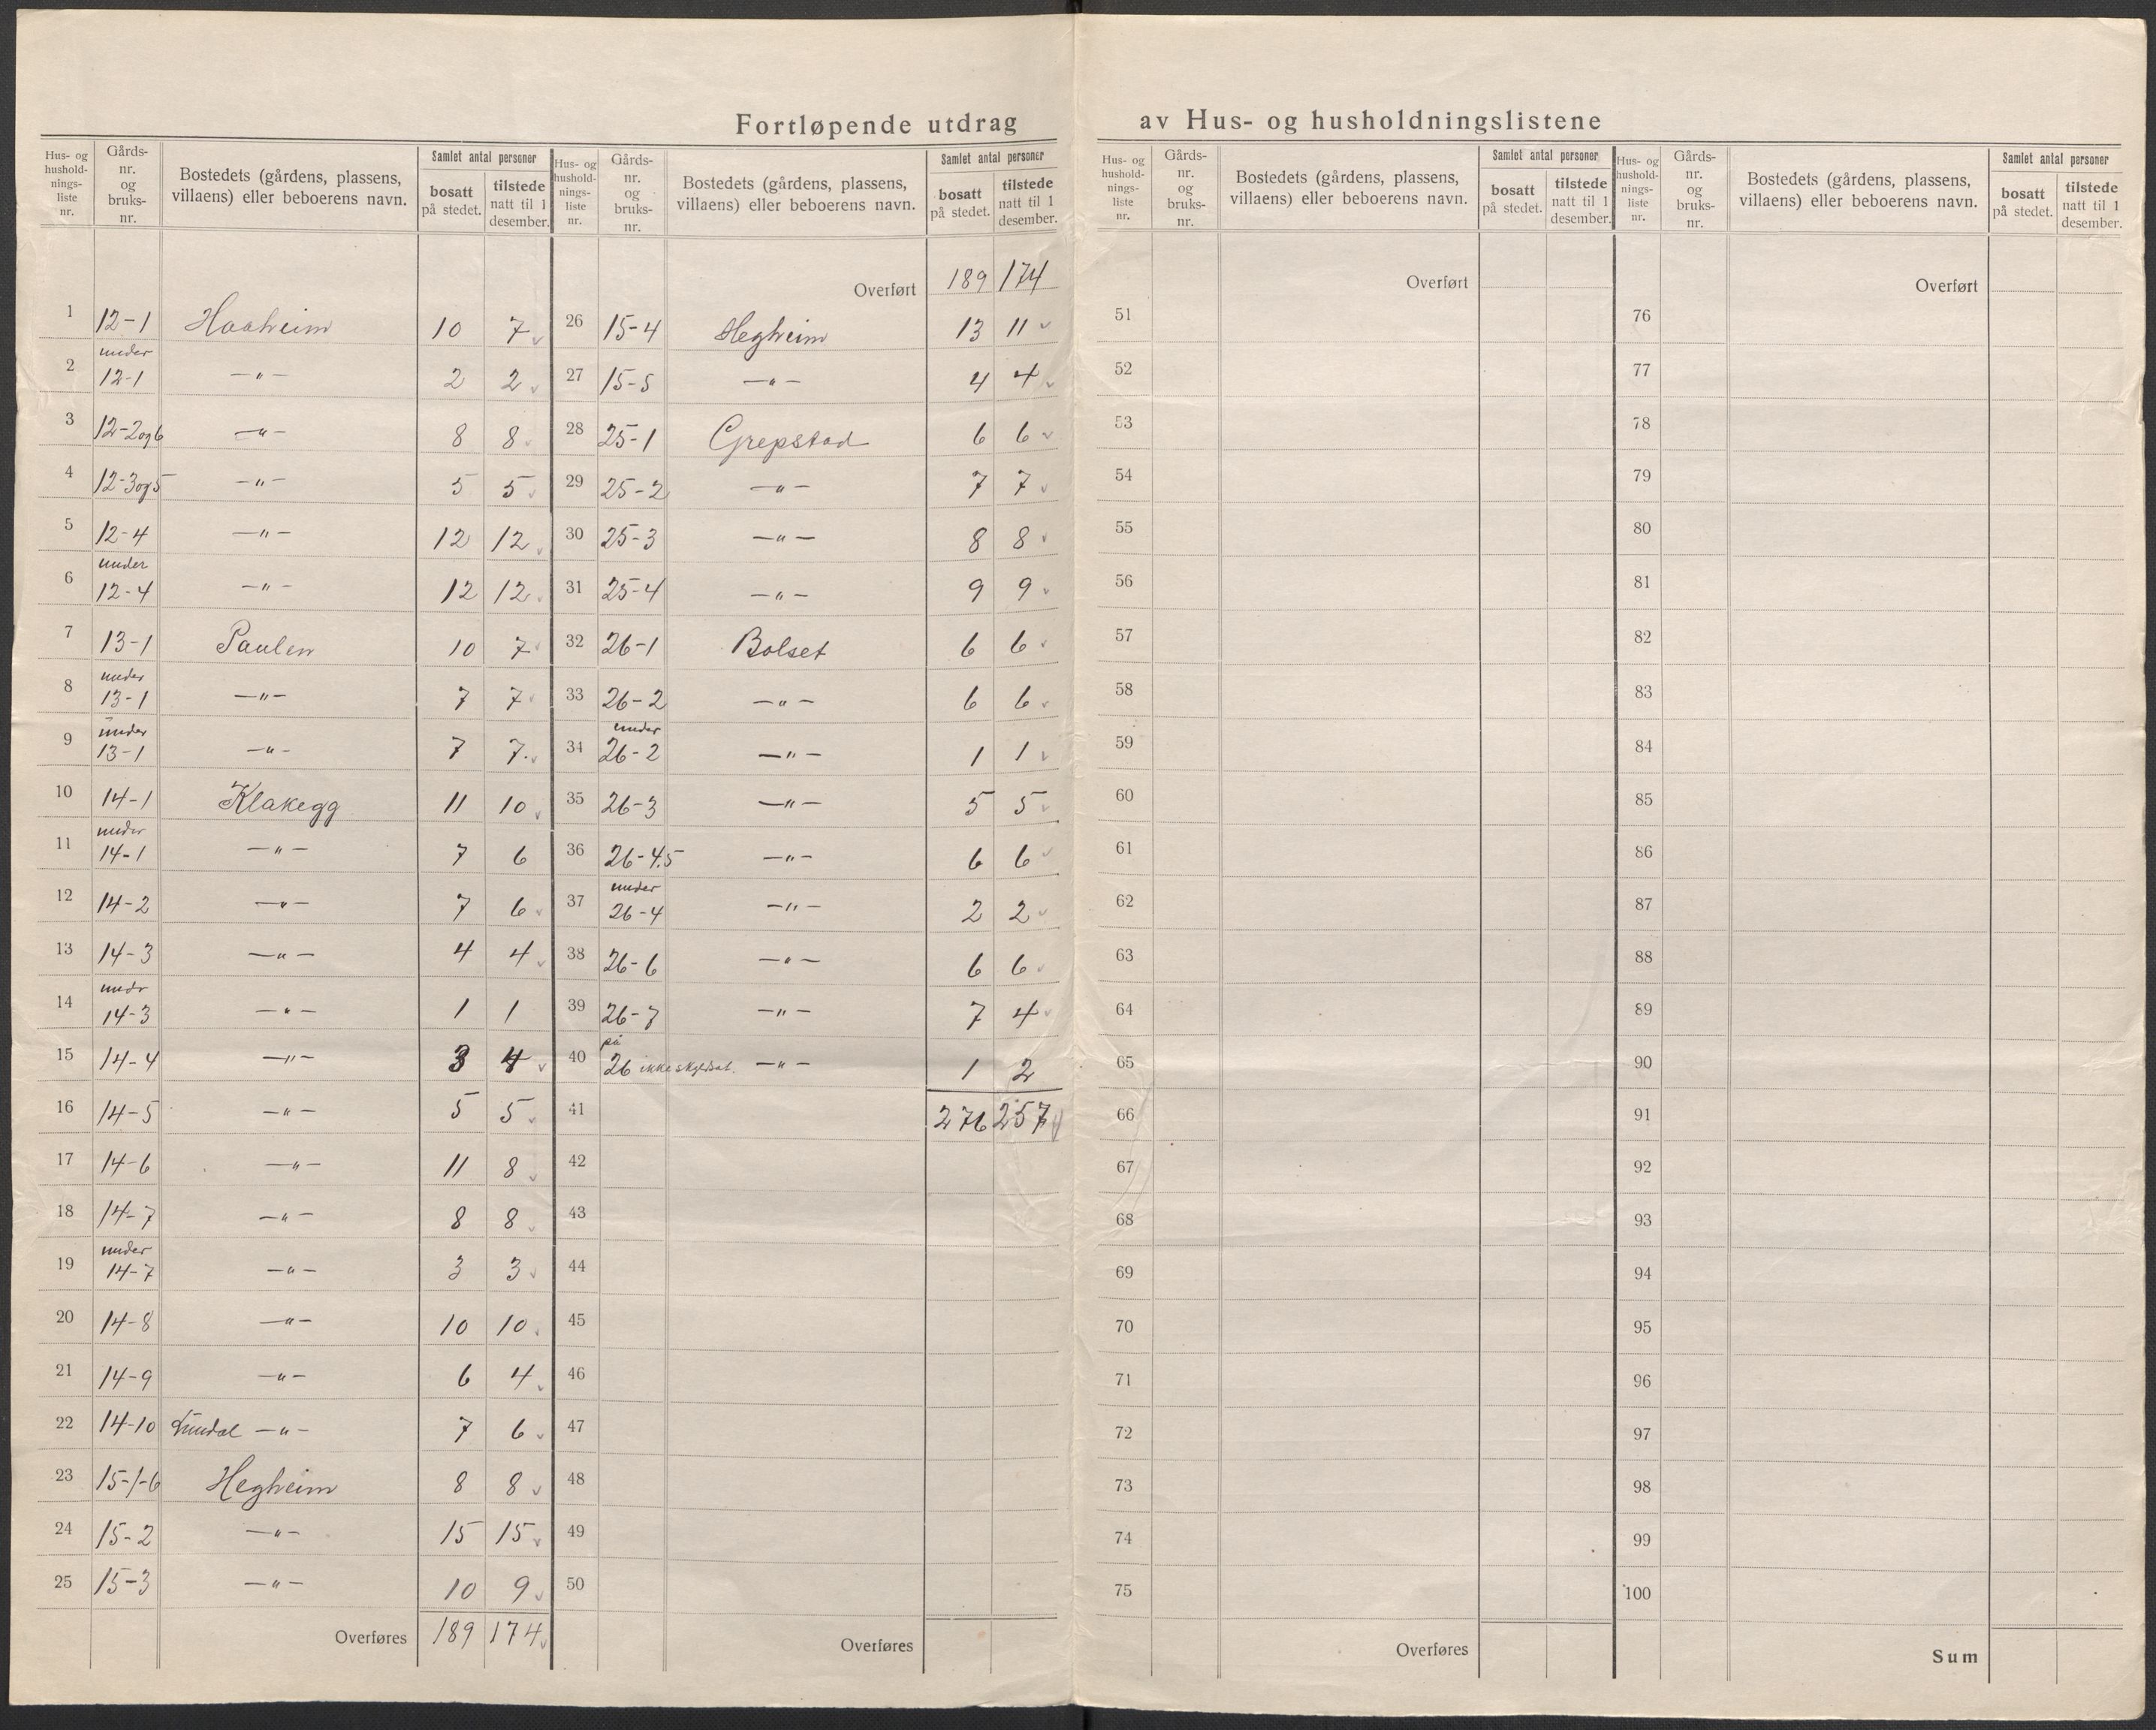 Fortløpende utdrag av Hus- og husholdningslistene
Hus- og hushold-nings-liste nr. | Gårds-nr. og bruks-nr. | Bostedets (gårdens, plassens, villaens) eller beboerens navn. | Samlet antal personer | bosatt på stedet. | tilstede natt til 1 desember.
1 12-1 Haaheim 10 7
2 under 12-1 —"— 2 2
3 12-2og6 —"— 8 8
4 12-3og5 —"— 5 5
5 12-4 —"— 12 12
6 under 12-4 —"— 12 12
7 13-1 Paulen 10 7
8 under 13-1 —"— 7 7
9 under 13-1 —"— 7 7
10 14-1 Klakegg 11 10
11 under 14-1 —"— 7 6
12 14-2 —"— 7 6
13 14-3 —"— 4 4
14 undr 14-3 —"— 1 1
15 14-4 —"— 3 4
16 14-5 —"— 5 5
17 14-6 —"— 11 8
18 14-7 —"— 8 8
19 under 14-7 —"— 3 3
20 14-8 —"— 10 10
21 14-9 —"— 6 4
22 14-10 —"— 7 6
23 15-1-6 Hegheim 8 8
24 15-2 —"— 15 15
25 15-3 —"— 10 9
Overføres 189 174
Hus- og hushold-nings-liste nr. | Gårds-nr. og bruks-nr. | Bostedets (gårdens, plassens, villaens) eller beboerens navn. | Samlet antal personer | bosatt på stedet. | tilstede natt til 1 desember.
Overført 189 174
26 15-4 Hegheim 13 11
27 15-5 —"— 4 4
28 25-1 Grepstad 6 6
29 25-2 —"— 7 7
30 25-3 —"— 8 8
31 25-4 —"— 9 9
32 26-1 Bolset 6 6
33 26-2 —"— 6 6
34 under 26-2 —"— 1 1
35 26-3 —"— 5 5
36 26-4.5 —"— 6 6
37 under 26-4 —"— 2 2
38 26-6 —"— 6 6
39 26-7 —"— 7 4
40 på 26 ikke skyldsat. —"— 1 2
41 276 257
42
43
44
45
46
47
48
49
50
Overføres
Hus- og hushold-nings-liste nr. | Gårds-nr. og bruks-nr. | Bostedets (gårdens, plassens, villaens) eller beboerens navn. | Samlet antal personer | bosatt på stedet. | tilstede natt til 1 desember.
Overført
51
52
53
54
55
56
57
58
59
60
61
62
63
64
65
66
67
68
69
70
71
72
73
74
75
Overføres
Hus- og hushold-nings-liste nr. | Gårds-nr. og bruks-nr. | Bostedets (gårdens, plassens, villaens) eller beboerens navn. | Samlet antal personer | bosatt på stedet. | tilstede natt til 1 desember.
Overført
76
77
78
79
80
81
82
83
84
85
86
87
88
89
90
91
92
93
94
95
96
97
98
99
100
Sum